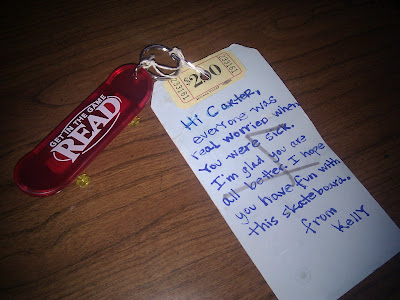 GET IN THE GAME
READ
$2.00
23191
23191
Hi Carter,
everyone was
real worried when
You were sick.
I'm glad you are
all better. I hope
you have fun with
this skateboard.
from
Kelly